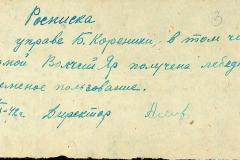 Росписка
3
управе Б. Кореники, в том чи
мой Волчий Яр получена лебед
еменое пользование.
-42г. Директор